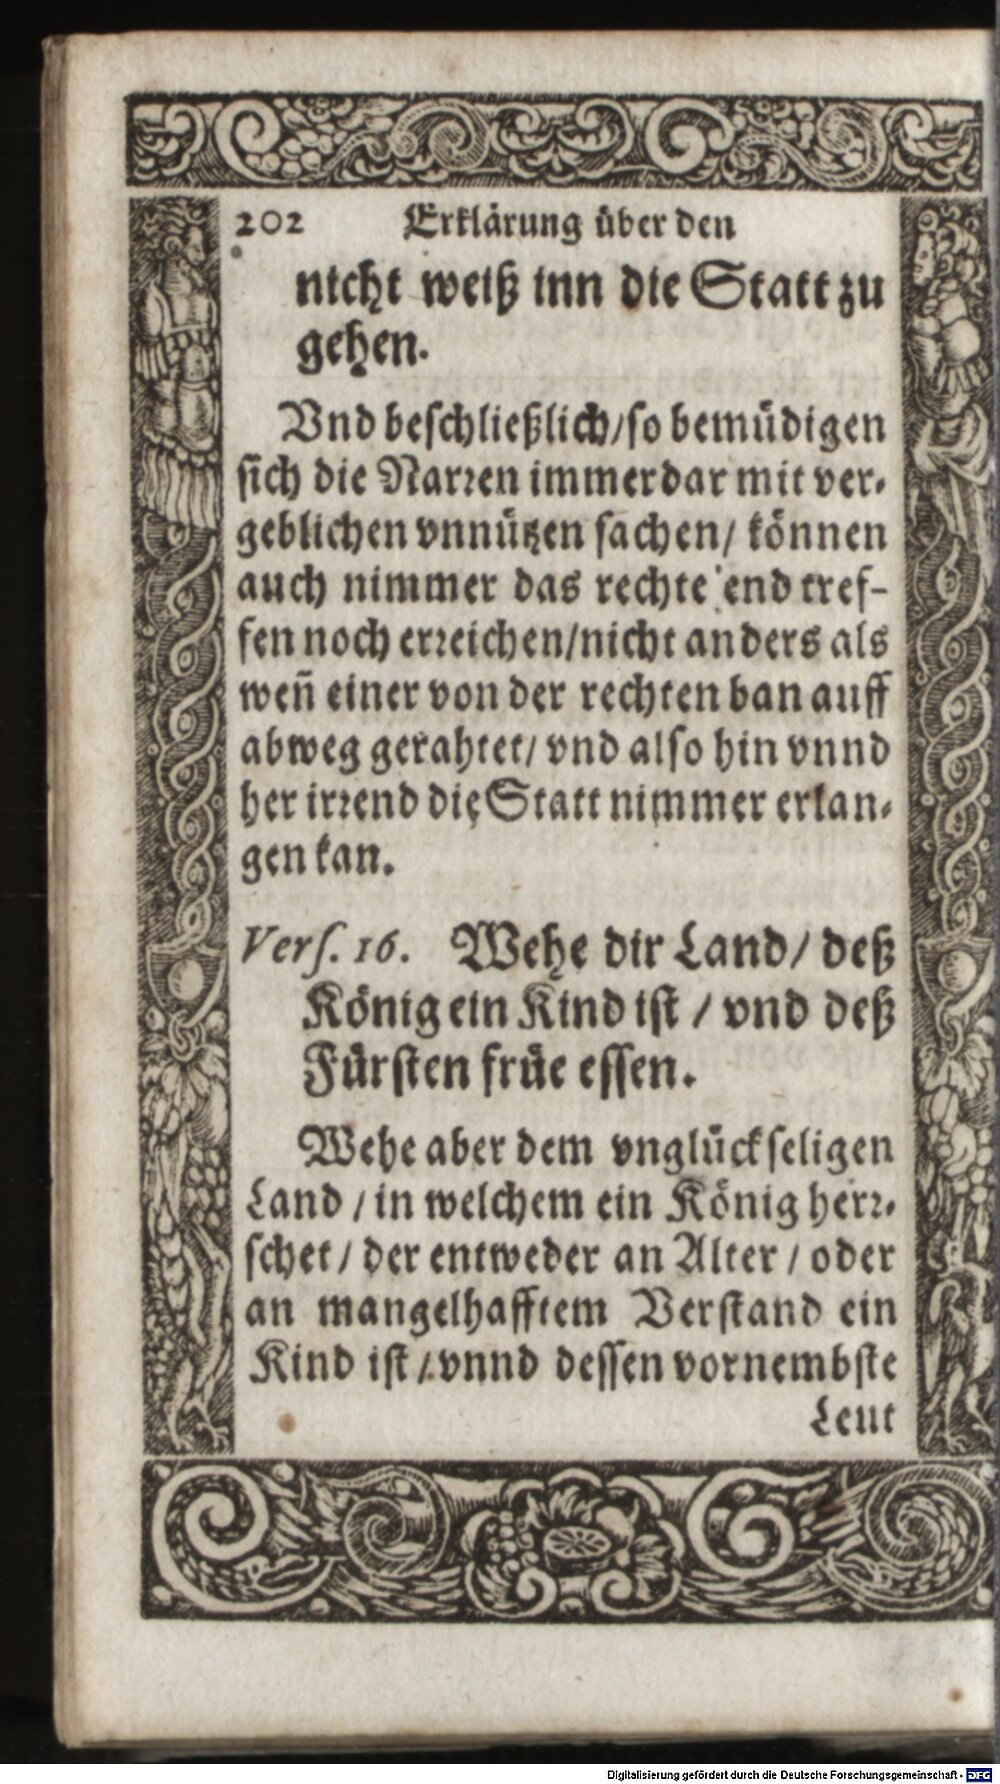 202 Erklärung über den
nicht weiß inn die Statt zu
gehen.
Vnd beschließlich/so bemüdigen
sich die Narren immerdar mit ver-
geblichen vnnützen sachen/ können
auch nimmer das rechte end tref-
fen noch erreichen/nicht anders als
weñ einer von der rechten ban auff
abweg gerahtet/ vnd also hin vnnd
her irrend die Statt nimmer erlan-
gen kan.
Vers. 16. Wehe dir Land/ deß
König ein Kind ist / vnd deß
Fürsten früe essen.
Wehe aber dem vnglückseligen
Land / in welchem ein König herr-
schet / der entweder an Alter / oder
an mangelhafftem Verstand ein
Kind ist / vnnd dessen vornembste
Leut
Digitalisierung gefördert durch die Deutsche Forschungsgemeinschaft - DFG